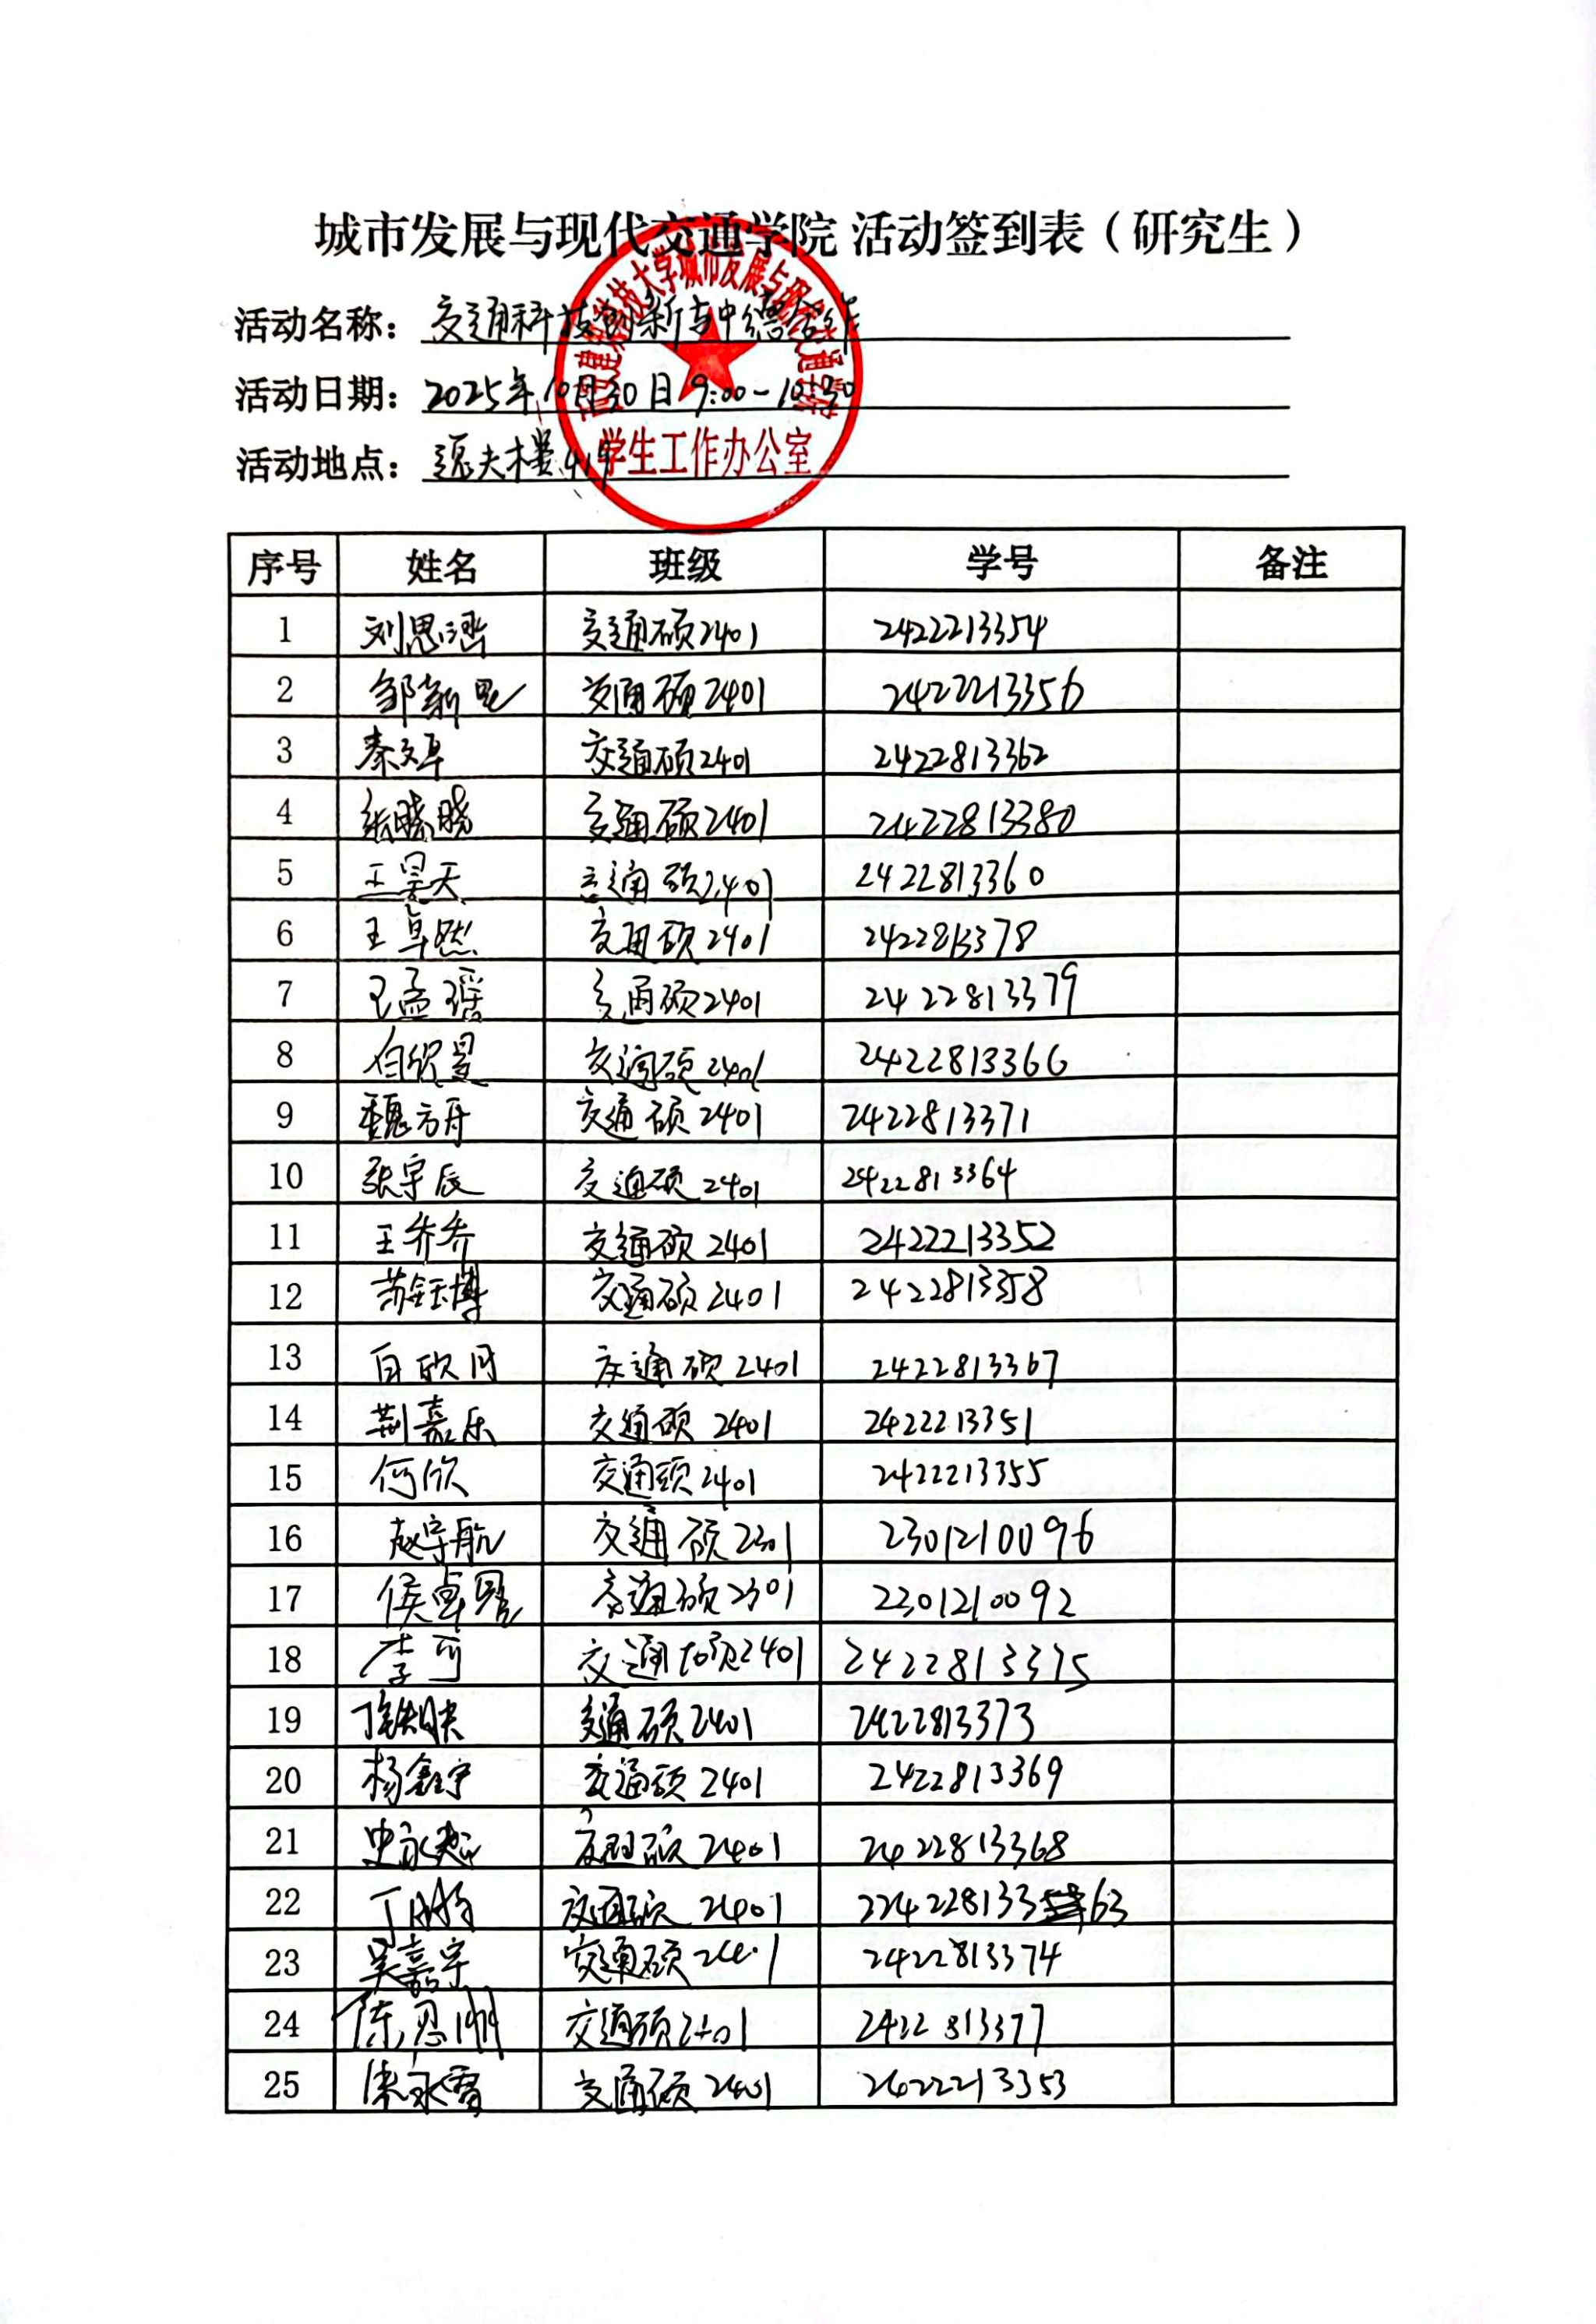 城市发展与现代交通学院 活动签到表（研究生）
活动名称：交通科技创新与中德合作
活动日期：2025年10月30日9:00-10:30
活动地点：逸夫楼419
学生工作办公室
序号 姓名 班级 学号 备注
1 刘思涵 交通硕2401 2422213354
2 邹新 交通硕2401 2422213356
3 秦文卓 交通硕2401 2422813362
4 张晓晓 交通硕2401 2422813380
5 王昊天 交通硕2401 2422813360
6 王卓然 交通硕2401 2422813378
7 王孟瑶 交通硕2401 2422813379
8 白欣昱 交通硕2401 2422813366
9 魏方舟 交通硕2401 2422813371
10 张宇辰 交通硕2401 2422813364
11 王乔乔 交通硕2401 2422213352
12 苏钰博 交通硕2401 2422813358
13 白欣月 交通硕2401 2422813367
14 荆嘉乐 交通硕2401 2422213351
15 何欣 交通硕2401 2422213355
16 赵宇航 交通硕2301 2301210096
17 侯卓 交通硕2301 2301210092
18 李可 交通硕2401 2422813375
19 交通硕2401 2422813373
20 杨鑫宇 交通硕2401 2422813369
21 史永超 交通硕2401 2422813368
22 丁 交通硕2401 22422813363
23 吴嘉宇 交通硕2401 2422813374
24 陈思 交通硕2401 2422813377
25 永雪 交通硕2401 2422213353